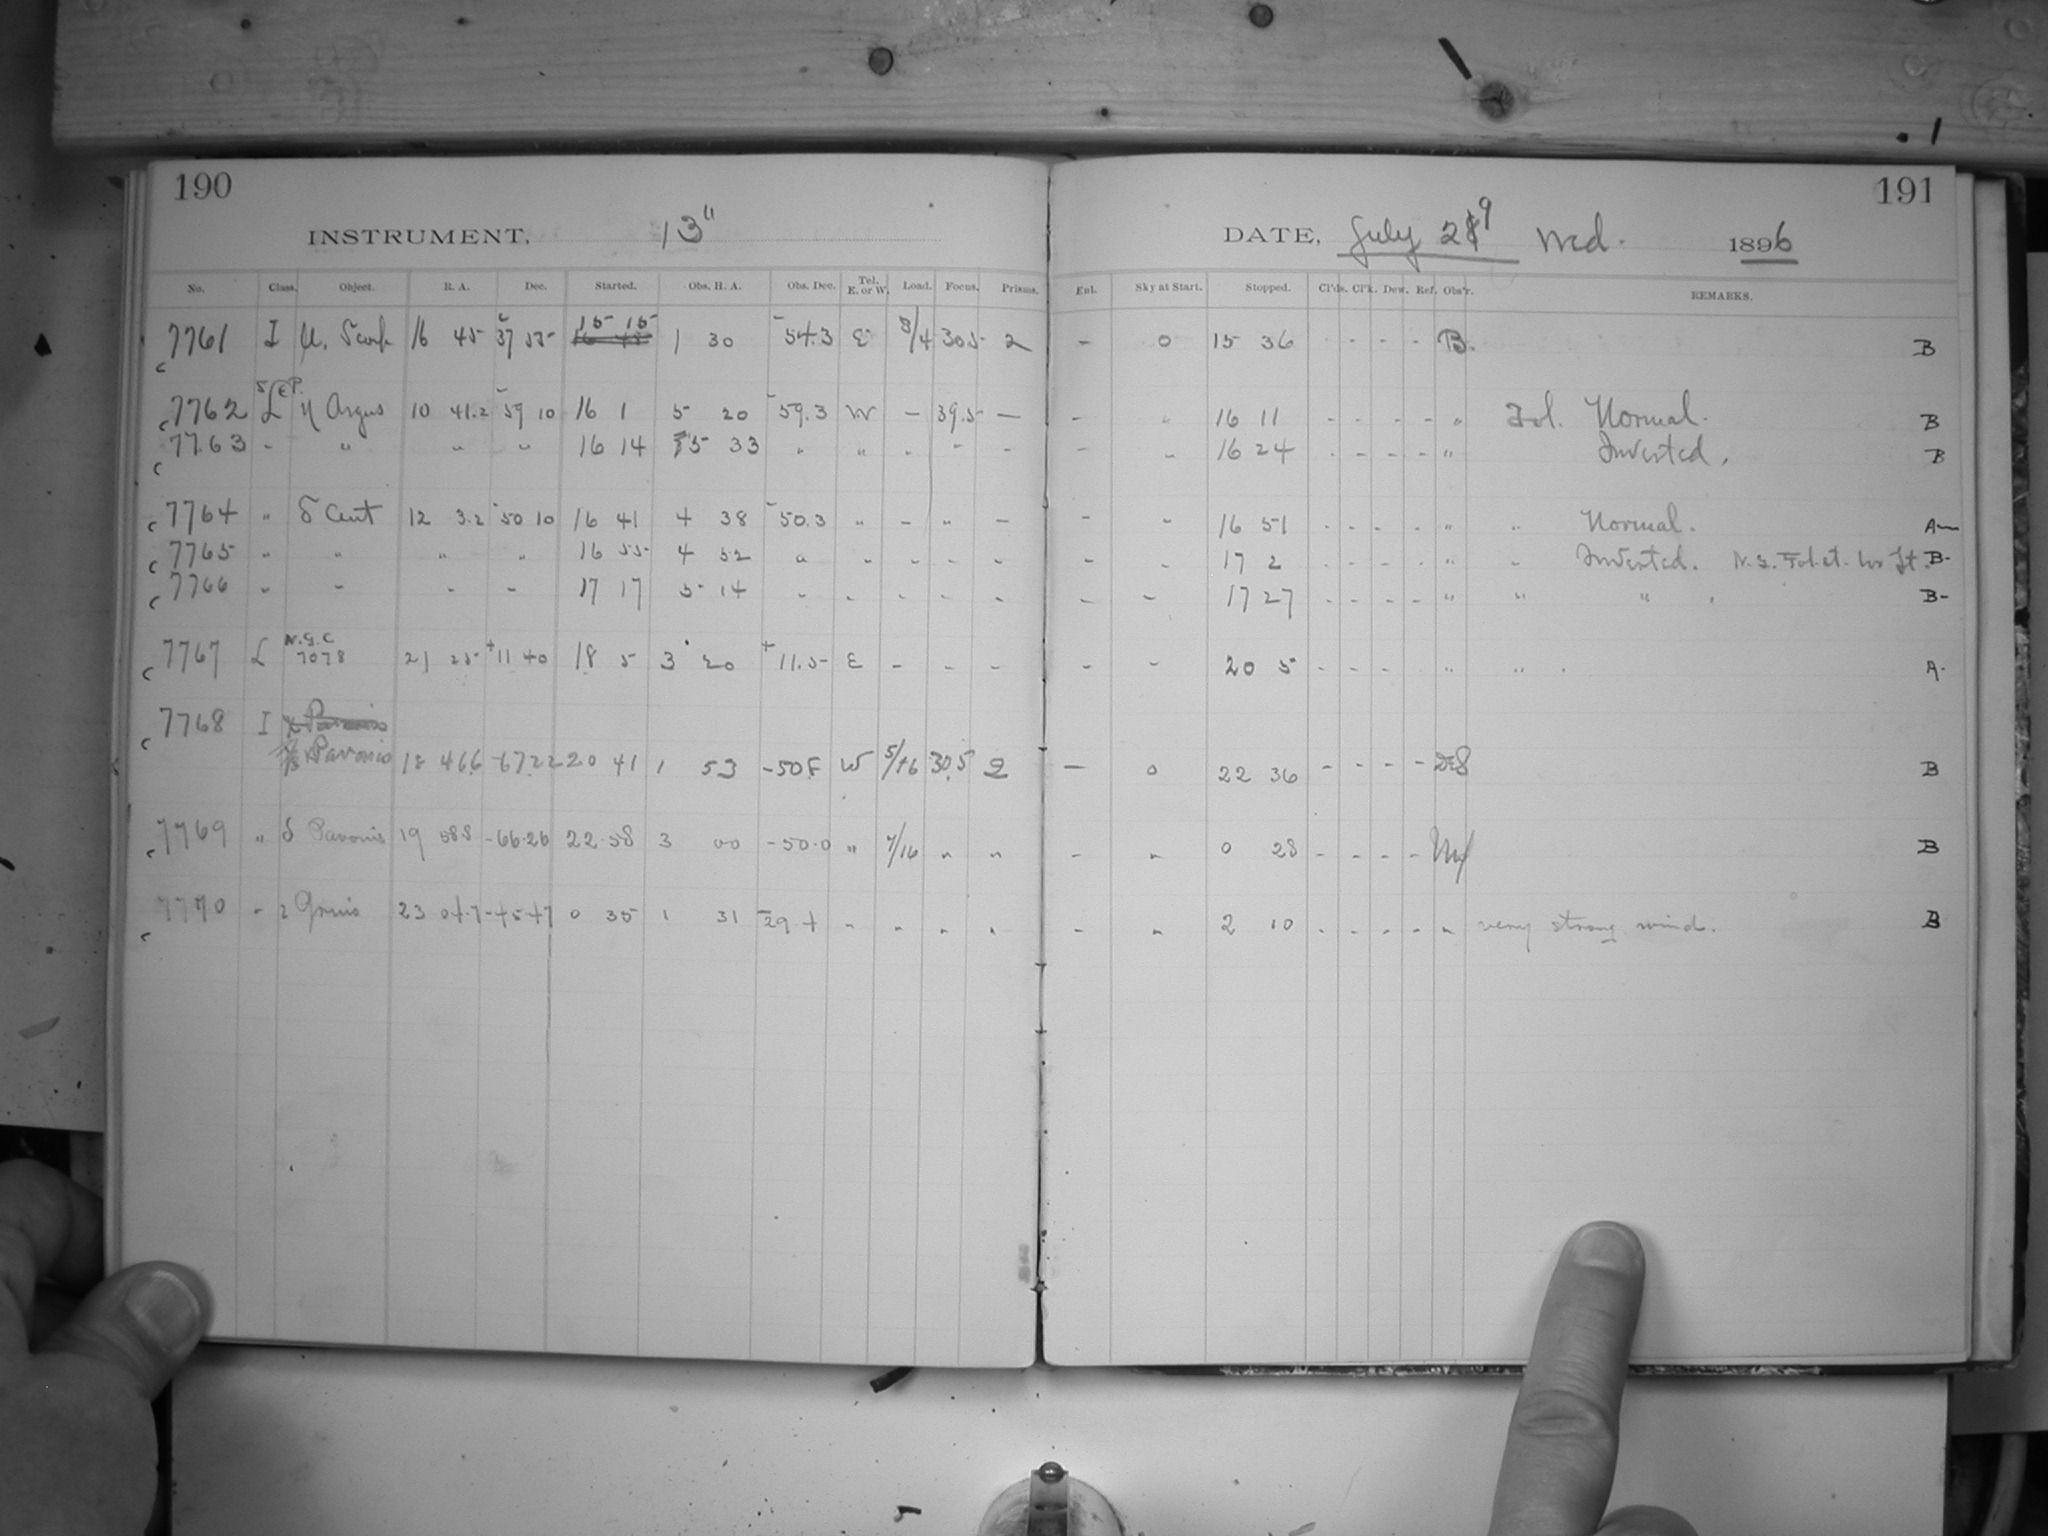 190
191
INSTRUMENT, 13"
DATE, July 29 Wed. 1896
No. Class. Object. R. A. Dec. Started. Obs. H. A. Obs. Dec. Tel. E. or W. Load. Focus. Prisms. Enl. Sky at Start. Stopped. Cl'ds. Cl'k. Dew. Ref. Obs'r. REMARKS.
7761 I μ, Scorp 16 45 -37 53 15 15 1 30 -54.3 E 3/4 30.5 2 - 0 15 36 - - - - B. B
7762 L η Argus 10 41.2 -59 10 16 1 5 20 -59.3 W - 39.5 - - " 16 11 - - - - " Fol. Normal. B
7763 " " " " 16 14 5 33 " " - - - - " 16 24 - - - - " Inverted. B
7764 " δ Cent 12 3.2 -50 10 16 41 4 38 -50.3 " - " - - " 16 51 - - - - " " Normal. A-
7765 " " " " 16 55 4 52 " " - - - - " 17 2 - - - - " " Inverted. N.G. B-
7766 " " " " 17 17 5 14 " " - - - - " 17 27 - - - - " " " B-
7767 L N.G.C 7078 21 25 +11 40 18 5 3 20 +11.5 E - - - - " 20 5 - - - - " " A-
7768 I
Pavonis 18 46.6 -67.22 20 41 1 53 -50.8 W 5/16 30.5 2 - 0 22 36 - - - - DeS B
7769 " δ Pavonis 19 58.8 -66.26 22.58 3 00 -50.0 " 7/16 " " - " 0 28 - - - - B
7770 " Gruis 23 04.7 -45 47 0 35 1 31 -29.4 " " " " - " 2 10 - - - - " very strong wind. B